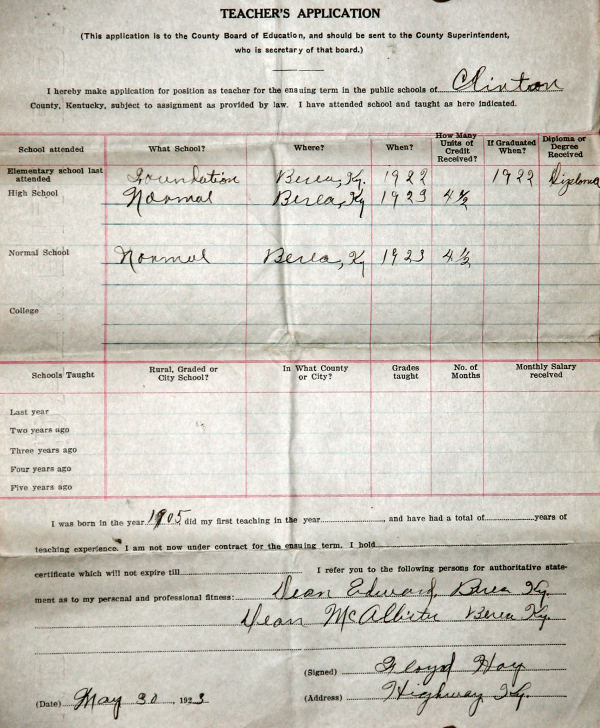 TEACHER'S APPLICATION
(This application is to the County Board of Education, and should be sent to the County Superintendent,
who is secretary of that board.)
I hereby make application for position as teacher for the ensuing term in the public schools of Clinton
County, Kentucky, subject to assignment as provided by law. I have attended school and taught as here indicated.
School attended What School? Where? When? How Many Units of Credit Received? If Graduated When? Diploma or Degree Received
Elementary school last attended Foundation Berea, Ky. 1922 1922 Diploma
High School Normal Berea, Ky 1923 4½
Normal School Normal Berea, Ky 1923 4½
College
Schools Taught Rural, Graded or City School? In What County or City? Grades taught No. of Months Monthly Salary received
Last year
Two years ago
Three years ago
Four years ago
Five years ago
I was born in the year 1905 did my first teaching in the year, and have had a total of years of
teaching experience. I am not now under contract for the ensuing term. I hold
certificate which will not expire till I refer you to the following persons for authoritative state-
ment as to my personal and professional fitness: Dean Edward, Berea Ky.
Dean McAllister Berea Ky.
(Signed) Floyd Hay
(Date) May 30, 1923 (Address) Highway Ky.